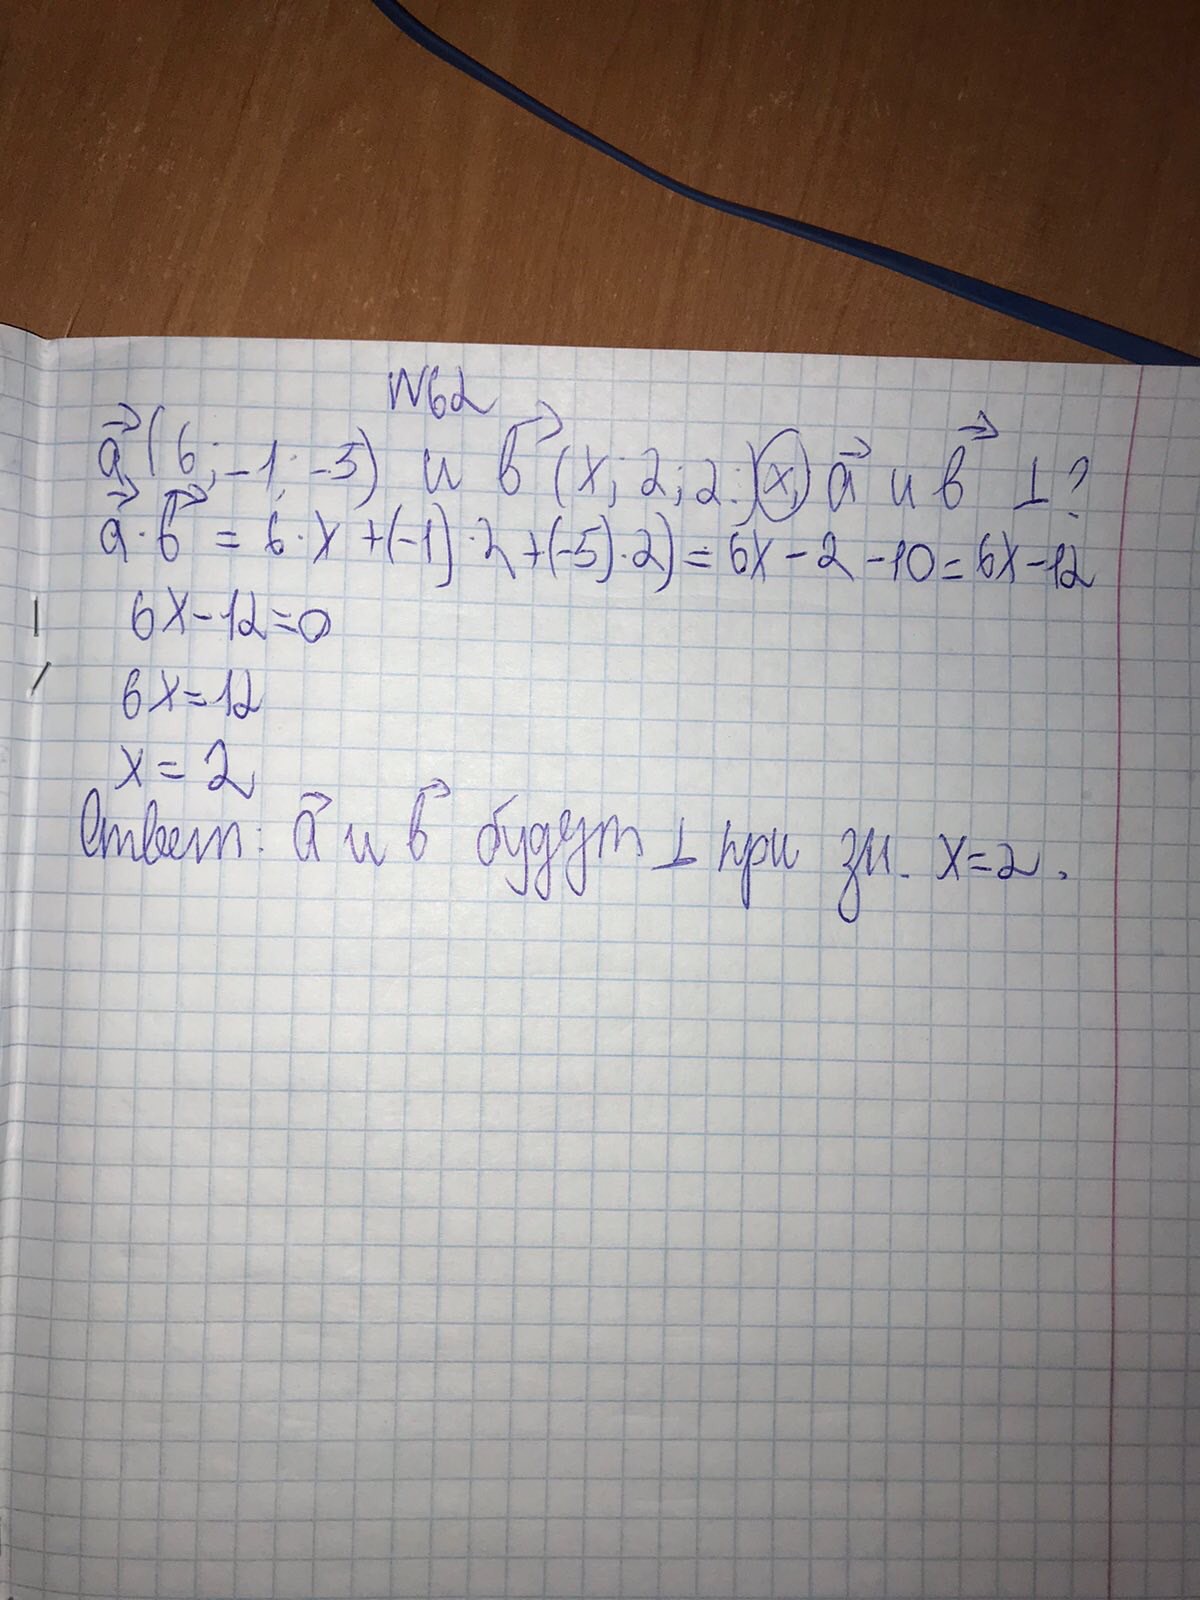 N62
a⃗ (6; -1; -5) и b⃗ (x; 2; 2;) x, a⃗ и b⃗ ⊥ ?
a⃗ · b⃗ = 6 · x + (-1) · 2 + (-5) · 2) = 6x - 2 - 10 = 6x - 12
6x - 12 = 0
6x = 12
x = 2
Ответ: a⃗ и b⃗ будут ⊥ при зн. x = 2.